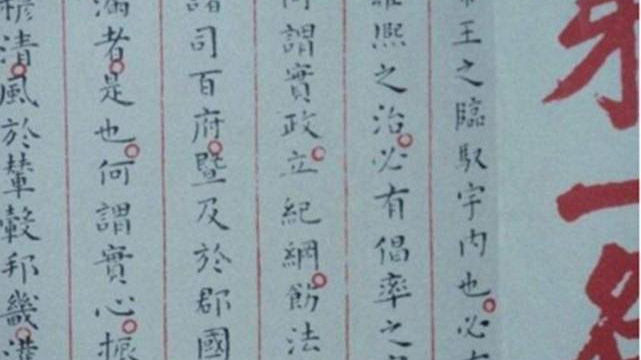 第一名
王之臨馭宇內也必
雍熙之治必有倡率之
何謂實政立紀綱飭法
諸司百府暨及於郡國
漏者是也何謂實心振
穆清風於輦轂邦畿灌